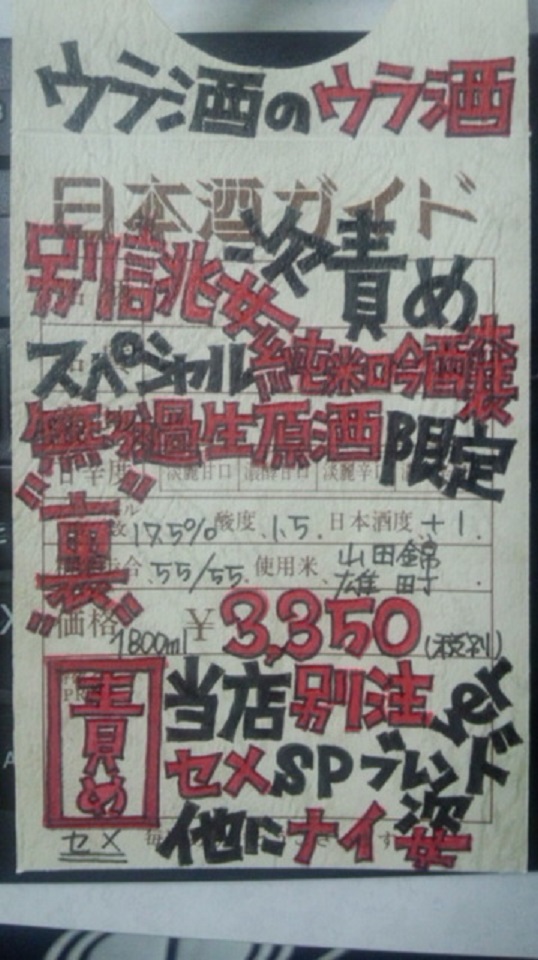 ウラ酒のウラ酒
日本酒ガイド
別誂女 次責め
スペシャル純米吟醸
無ろ過生原酒限定
淡麗甘口 濃醇甘口 淡麗辛口
"裏"
17.5% 酸度 1.5 日本酒度 +1
55/55 使用米 山田錦 雄町
価格 1800ml ¥3,350(税別)
責め
当店別注ver
セメSPブレンド
他にナイ姿
セメ